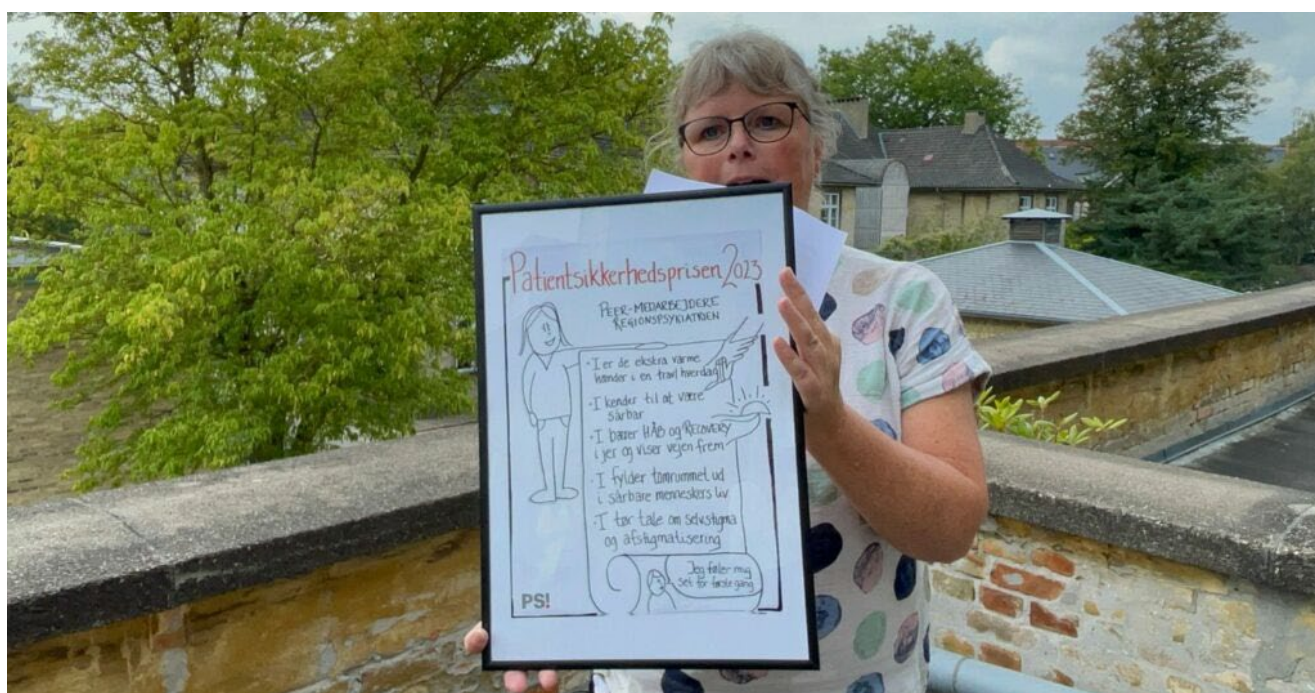 Patientsikkerhedsprisen 2023
PEER-MEDARBEJDERE
REGIONSPSYKIATRIEN
• I er de ekstra varme
hænder i en travl hverdag
• I kender til at være
sårbar
• I bærer HÅB og RECOVERY
i jer og viser vejen frem
• I fylder tomrummet ud
i sårbare menneskers liv
• I tør tale om selvstigma
og afstigmatisering
Jeg føler mig
set for første gang
PS!